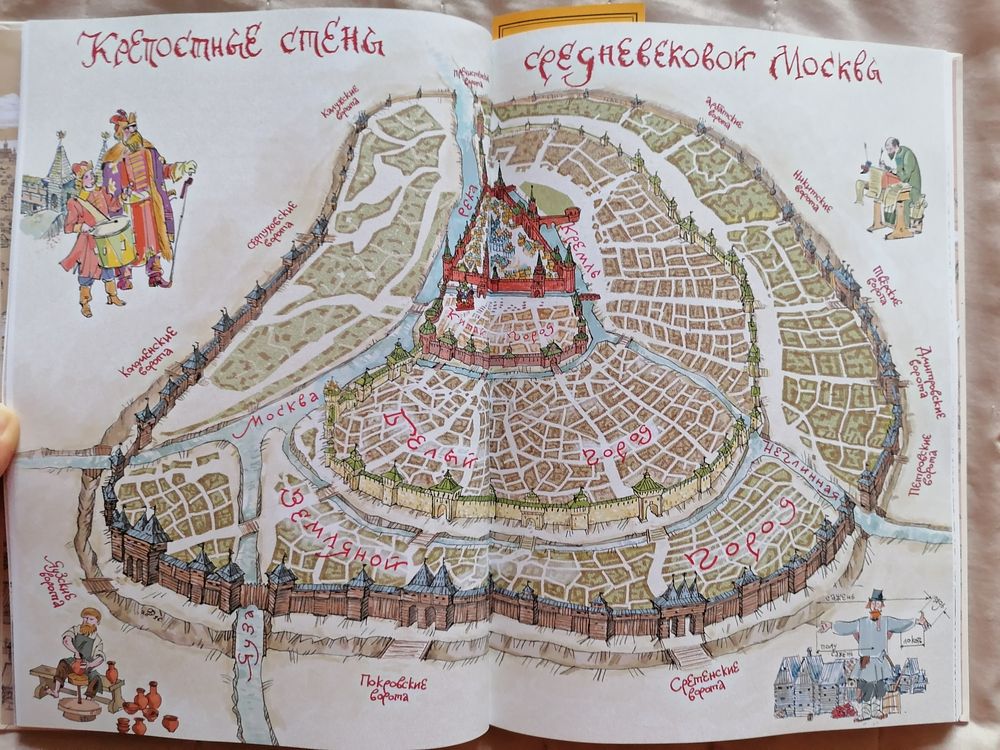 Крепостные стены средневековой Москвы
Пречистенские
ворота
Калужские
ворота
Арбатские
ворота
Никитские
ворота
Серпуховские
ворота
река
Кремль
Тверские
ворота
Китай город
Коломенские
ворота
Дмитровские
ворота
Москва
Белый город
Петровские
ворота
Неглинная
Земляной город
Яузские
ворота
Яуза
сажень
полу
сажен
локоть
Покровские
ворота
Сретенские
ворота